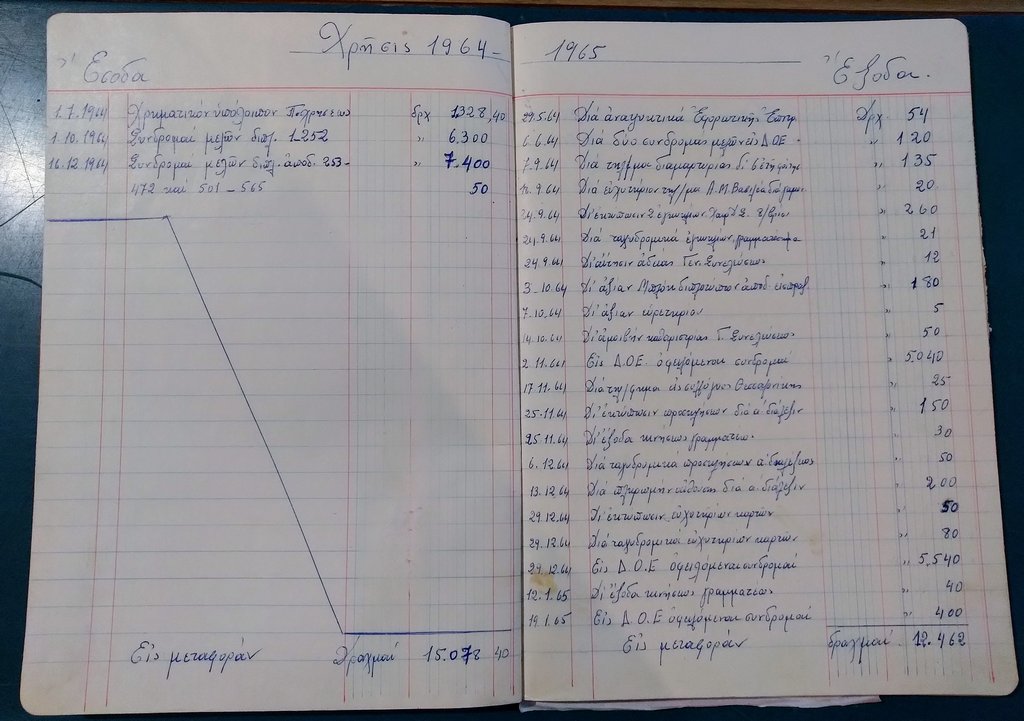 Χρῆσις 1964 - 1965
Ἔσοδα
1.7.1964 Χρηματικόν ὑπόλοιπον δρχ 1328,40
1.10.1964 Συνδρομαί μελῶν διπλ. 1-252 " 6.300
16.12.1964 Συνδρομαί μελῶν διπλ. ἀποδ. 253- " 7.400
472 καί 501 - 565 50
Εἰς μεταφοράν Δραχμαί 15.078 40
Ἔξοδα.
29.5.64 Διά ἀναψυκτικά Ἐφορευτικῆς Ἐπιτρ. Δρχ 54
6.6.64 Διά δύο συνδρομάς μελῶν εἰς ΔΟΕ " 120
7.9.64 Διά τηλ/μα διαμαρτυρίας " 135
9.64 Διά εὐχητήριον τηλ/μα Α.Μ. Βασιλέα " 20
24.9.64 Δι' ἐκτύπωσιν 2 ἐγκυκλίων " 260
24.9.64 Διά ταχυδρομικά ἐγκυκλίων, γραμματόσημα " 21
24.9.64 Δι' αἴτησιν ἀδείας Γεν. Συνελεύσεως " 12
3-10.64 Δι' ἀξίαν Μπλόκ διπλοτύπων ἀποδ. εἰσπραξ. " 180
7.10.64 Δι' ἀξίαν εὑρετηρίου " 5
14.10.64 Δι' ἀμοιβήν καθαριστρίας Γ. Συνελεύσεως " 50
2.11.64 Εἰς Δ.Ο.Ε. ὀφειλόμεναι συνδρομαί " 5.040
17.11.64 Διά τηλ/φημα εἰς σύλλογον Θεσσαλονίκης " 25
25-11.64 Δι' ἐκτύπωσιν προσκλήσεων διά α' διάλεξιν " 150
25.11.64 Δι' ἔξοδα κινήσεως γραμματέως " 30
6.12.64 Διά ταχυδρομικά προσκλήσεων α' διαλέξεως " 50
13.12.64 Διά πληρωμήν αἰθούσης διά α' διάλεξιν " 200
29.12.64 Δι' ἐκτύπωσιν εὐχητηρίων καρτῶν " 50
29.12.64 Διά ταχυδρομικά εὐχητηρίων καρτῶν " 80
29.12.64 Εἰς Δ.Ο.Ε ὀφειλόμεναι συνδρομαί " 5.540
12.1.65 Δι' ἔξοδα κινήσεως γραμματέως " 40
19.1.65 Εἰς Δ.Ο.Ε ὀφειλόμεναι συνδρομαί " 400
Εἰς μεταφοράν δραχμαί 12.462